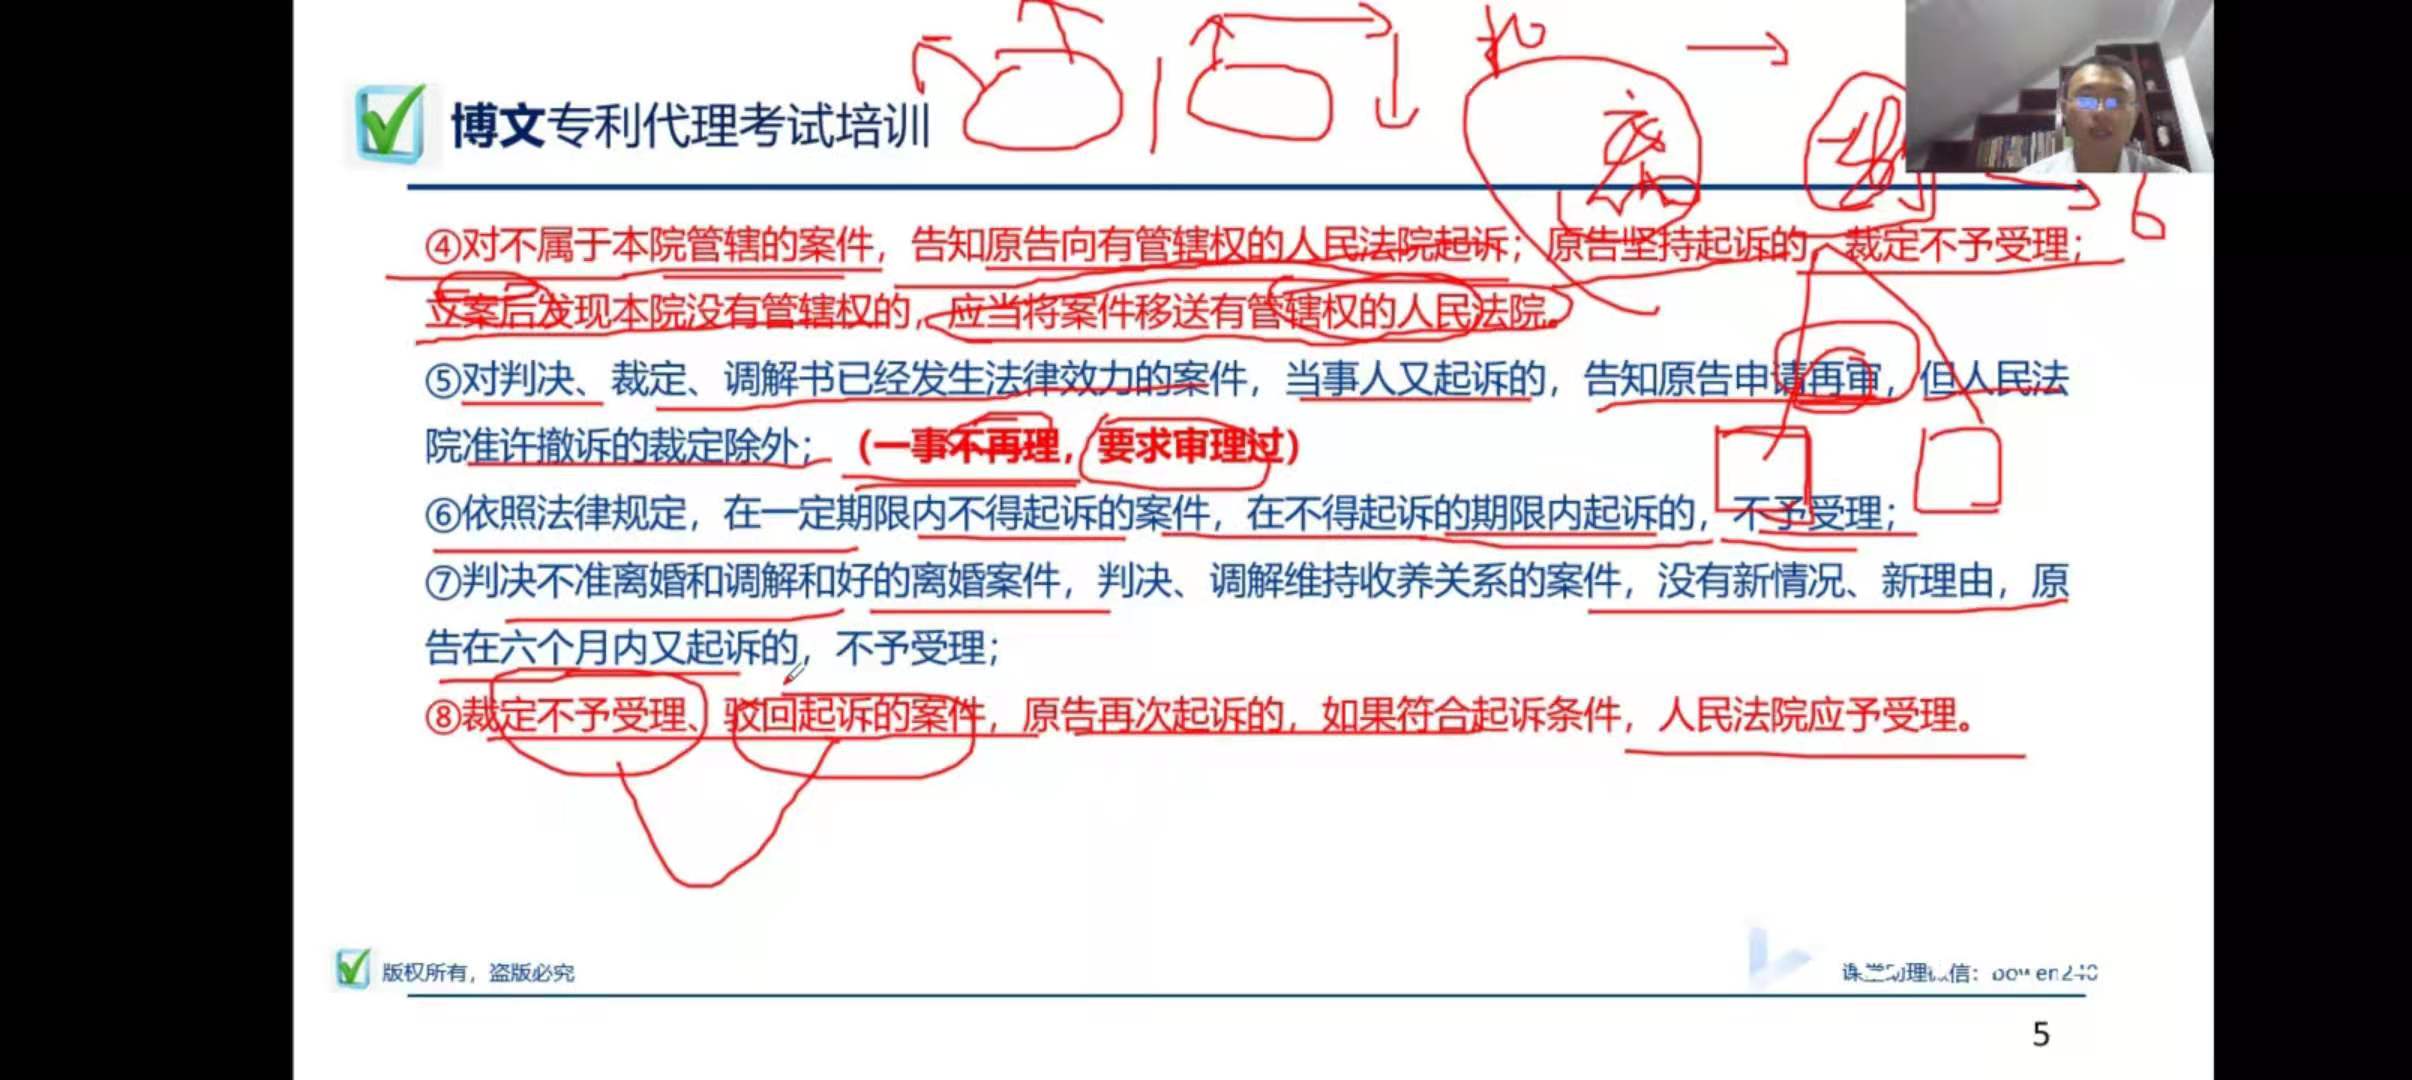 博文专利代理考试培训
④对不属于本院管辖的案件，告知原告向有管辖权的人民法院起诉；原告坚持起诉的，裁定不予受理；
立案后发现本院没有管辖权的，应当将案件移送有管辖权的人民法院。
⑤对判决、裁定、调解书已经发生法律效力的案件，当事人又起诉的，告知原告申请再审，但人民法
院准许撤诉的裁定除外；（一事不再理，要求审理过）
⑥依照法律规定，在一定期限内不得起诉的案件，在不得起诉的期限内起诉的，不予受理；
⑦判决不准离婚和调解和好的离婚案件，判决、调解维持收养关系的案件，没有新情况、新理由，原
告在六个月内又起诉的，不予受理；
⑧裁定不予受理、驳回起诉的案件，原告再次起诉的，如果符合起诉条件，人民法院应予受理。
版权所有，盗版必究
5